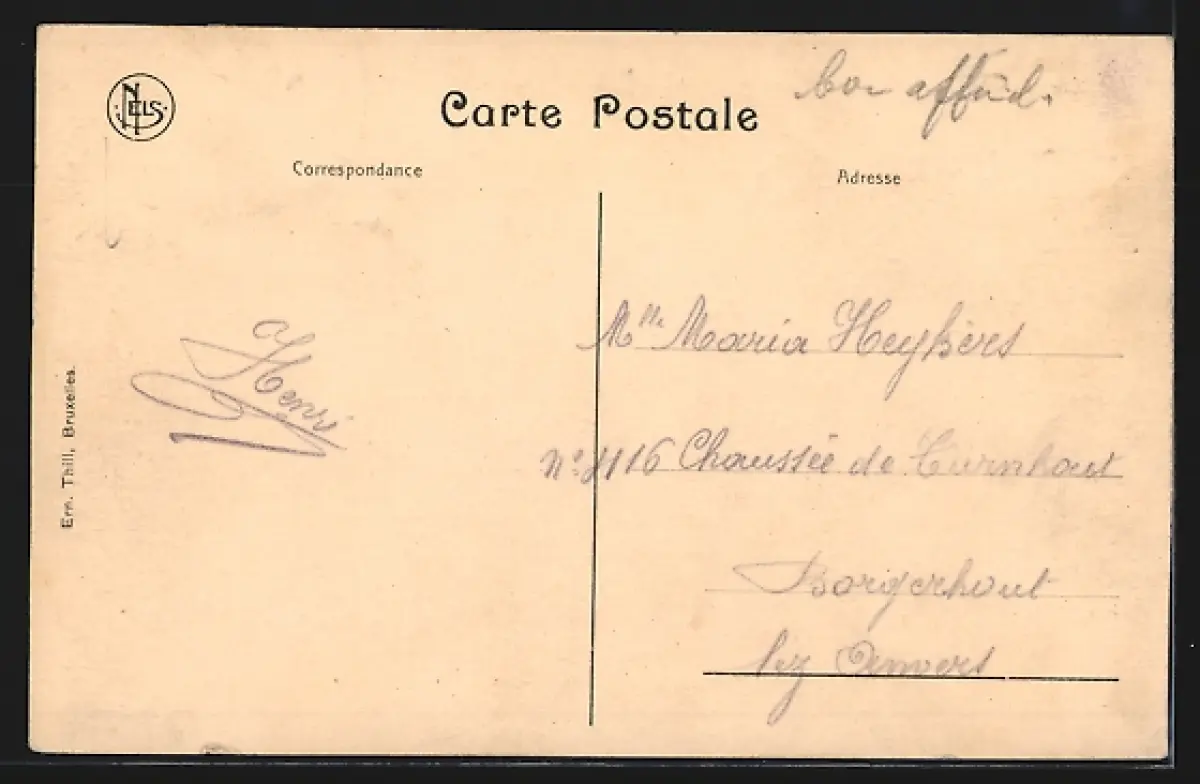 NELS
Carte Postale
Correspondance
Adresse
Ern. Thill, Bruxelles.
Henri
Mlle Maria Heybers
Chaussée de Turnhout
Borgerhout
lez Anvers